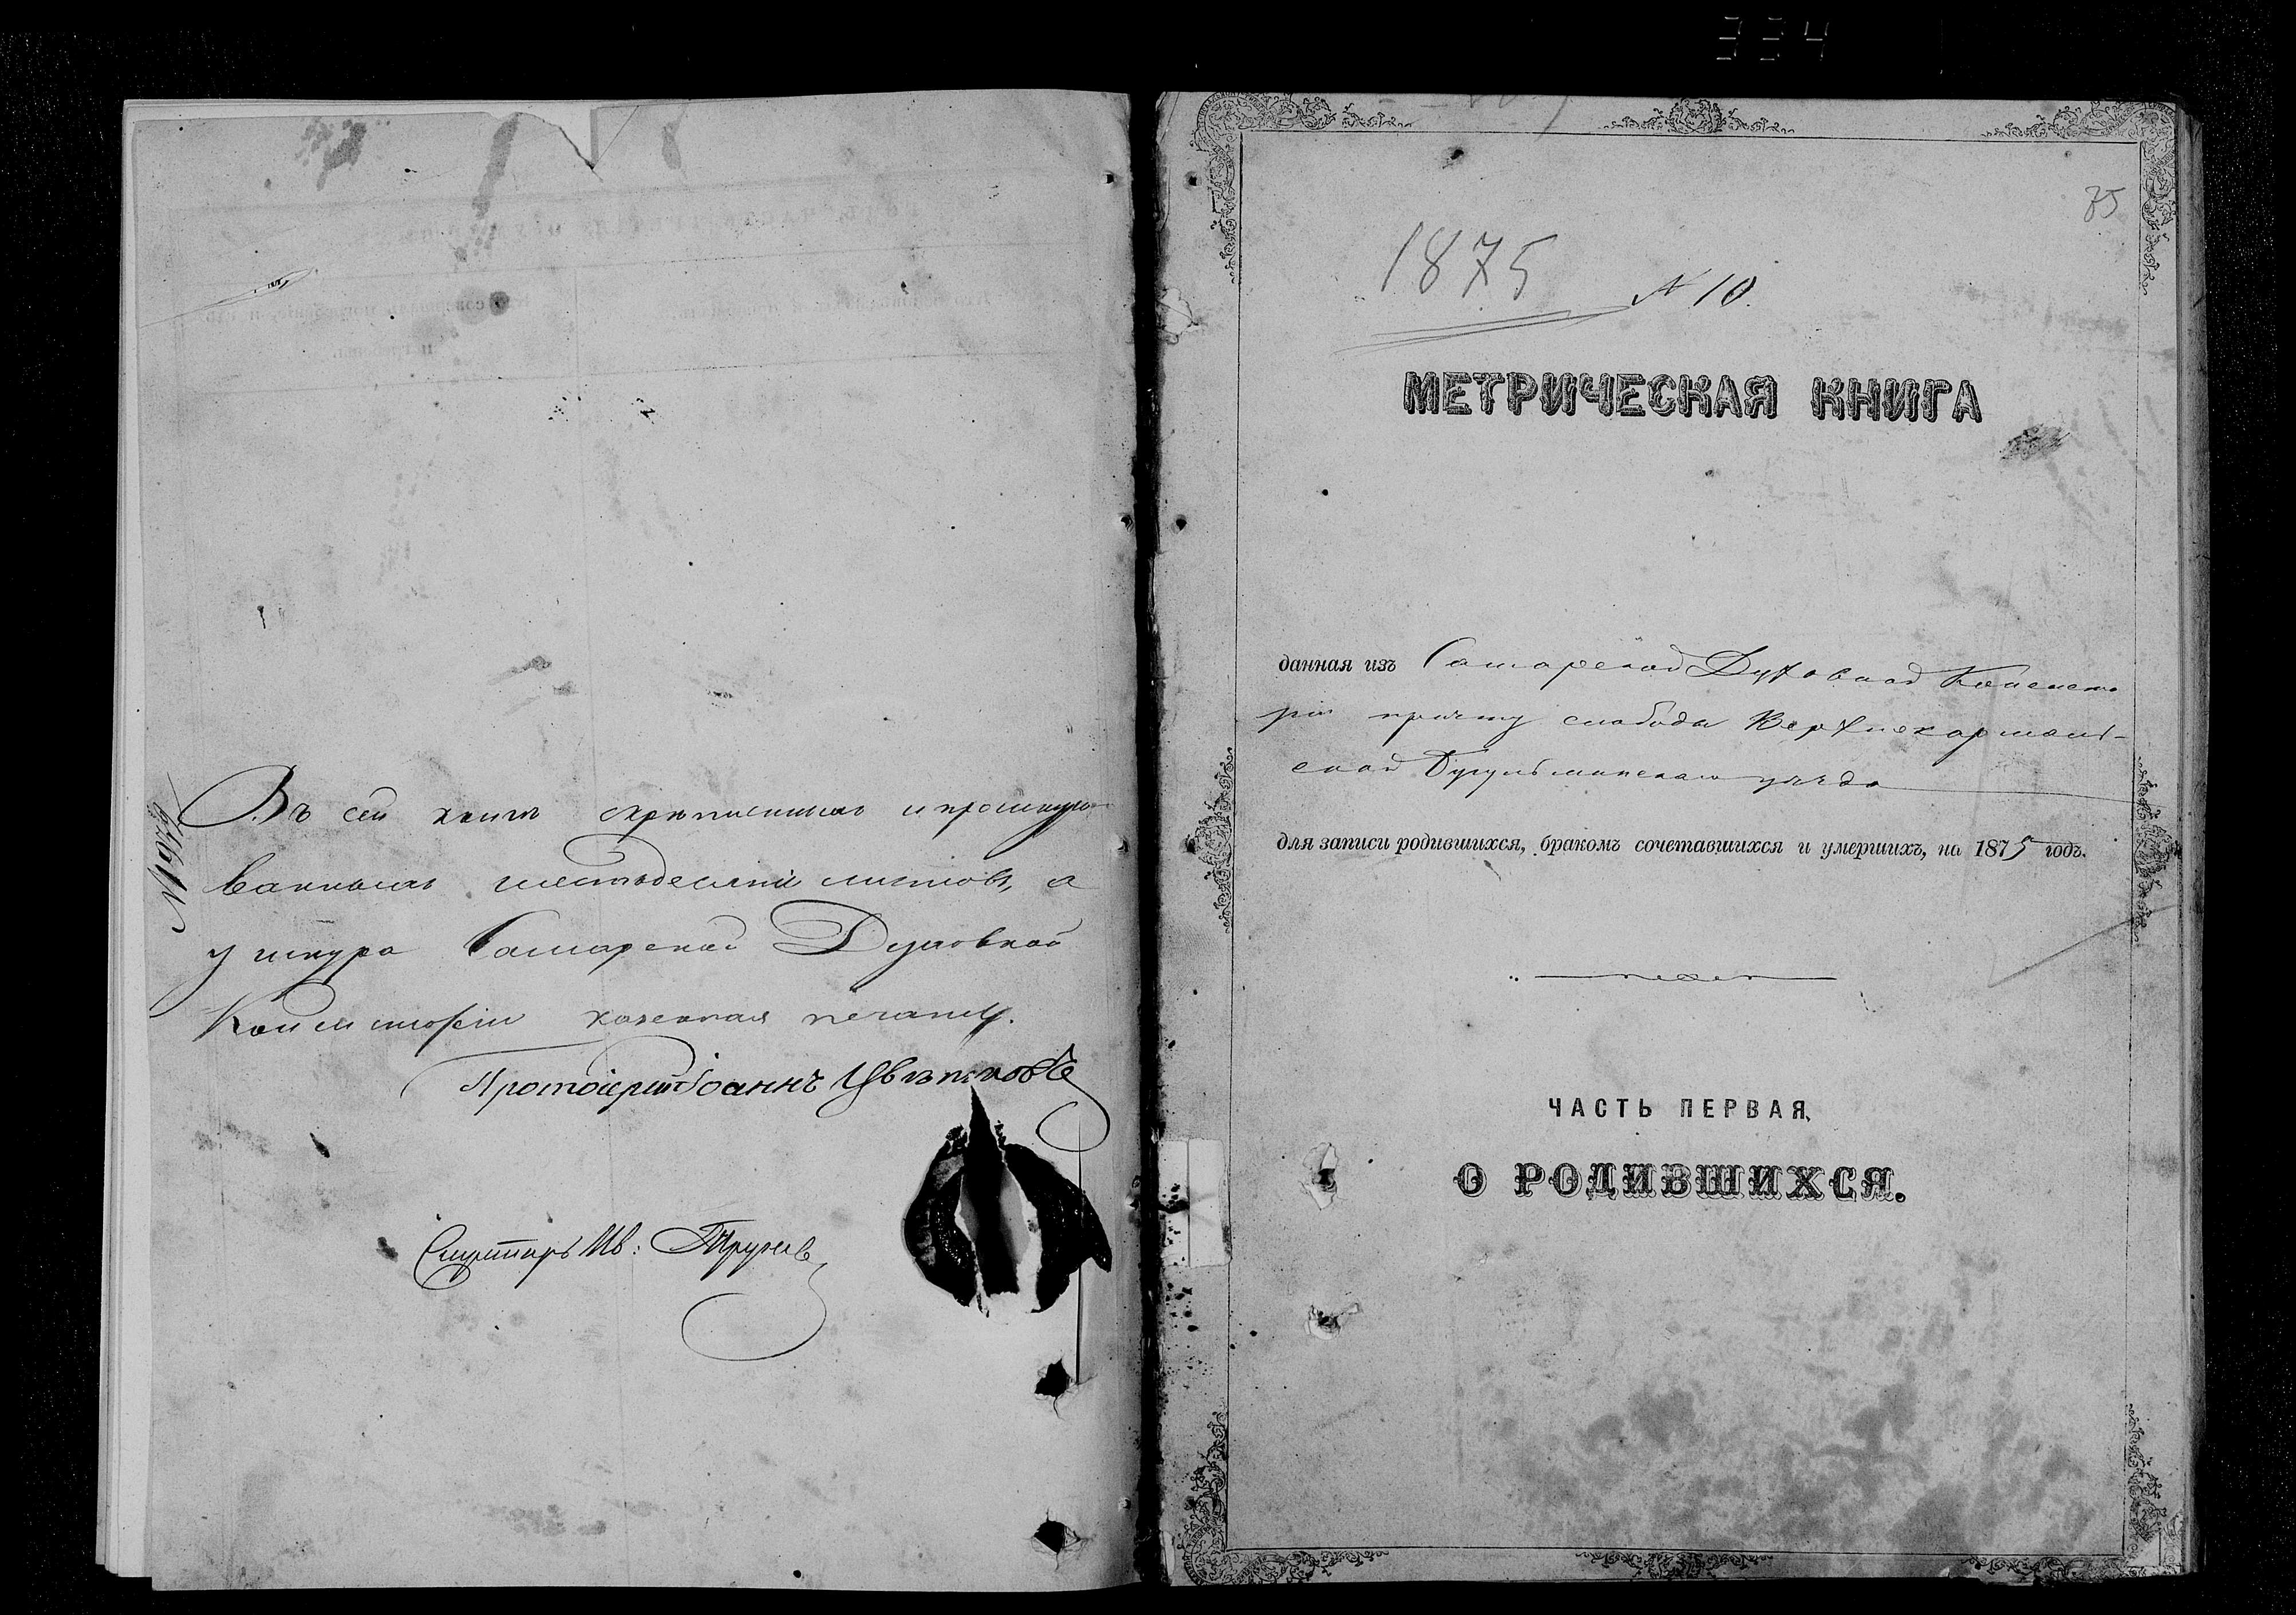 334
№ 16779
Въ сей книгѣ скрѣпленныхъ и прошнуро-
ванныхъ шестьдесятъ листовъ, а
у шнура Самарской Духовной
Консисторіи казенная печать.
Протоіерей Іоаннъ Цвѣтковъ
Секретарь Ив:
35
1875
№ 10.
МЕТРИЧЕСКАЯ КНИГА
данная изъ Самарской Духовной Консисто
ріи причту слободы Верхнекармаль-
ской Бугульминскаго уѣзда
для записи родившихся, бракомъ сочетавшихся и умершихъ, на 1875 годъ.
ЧАСТЬ ПЕРВАЯ,
О РОДИВШИХСЯ.